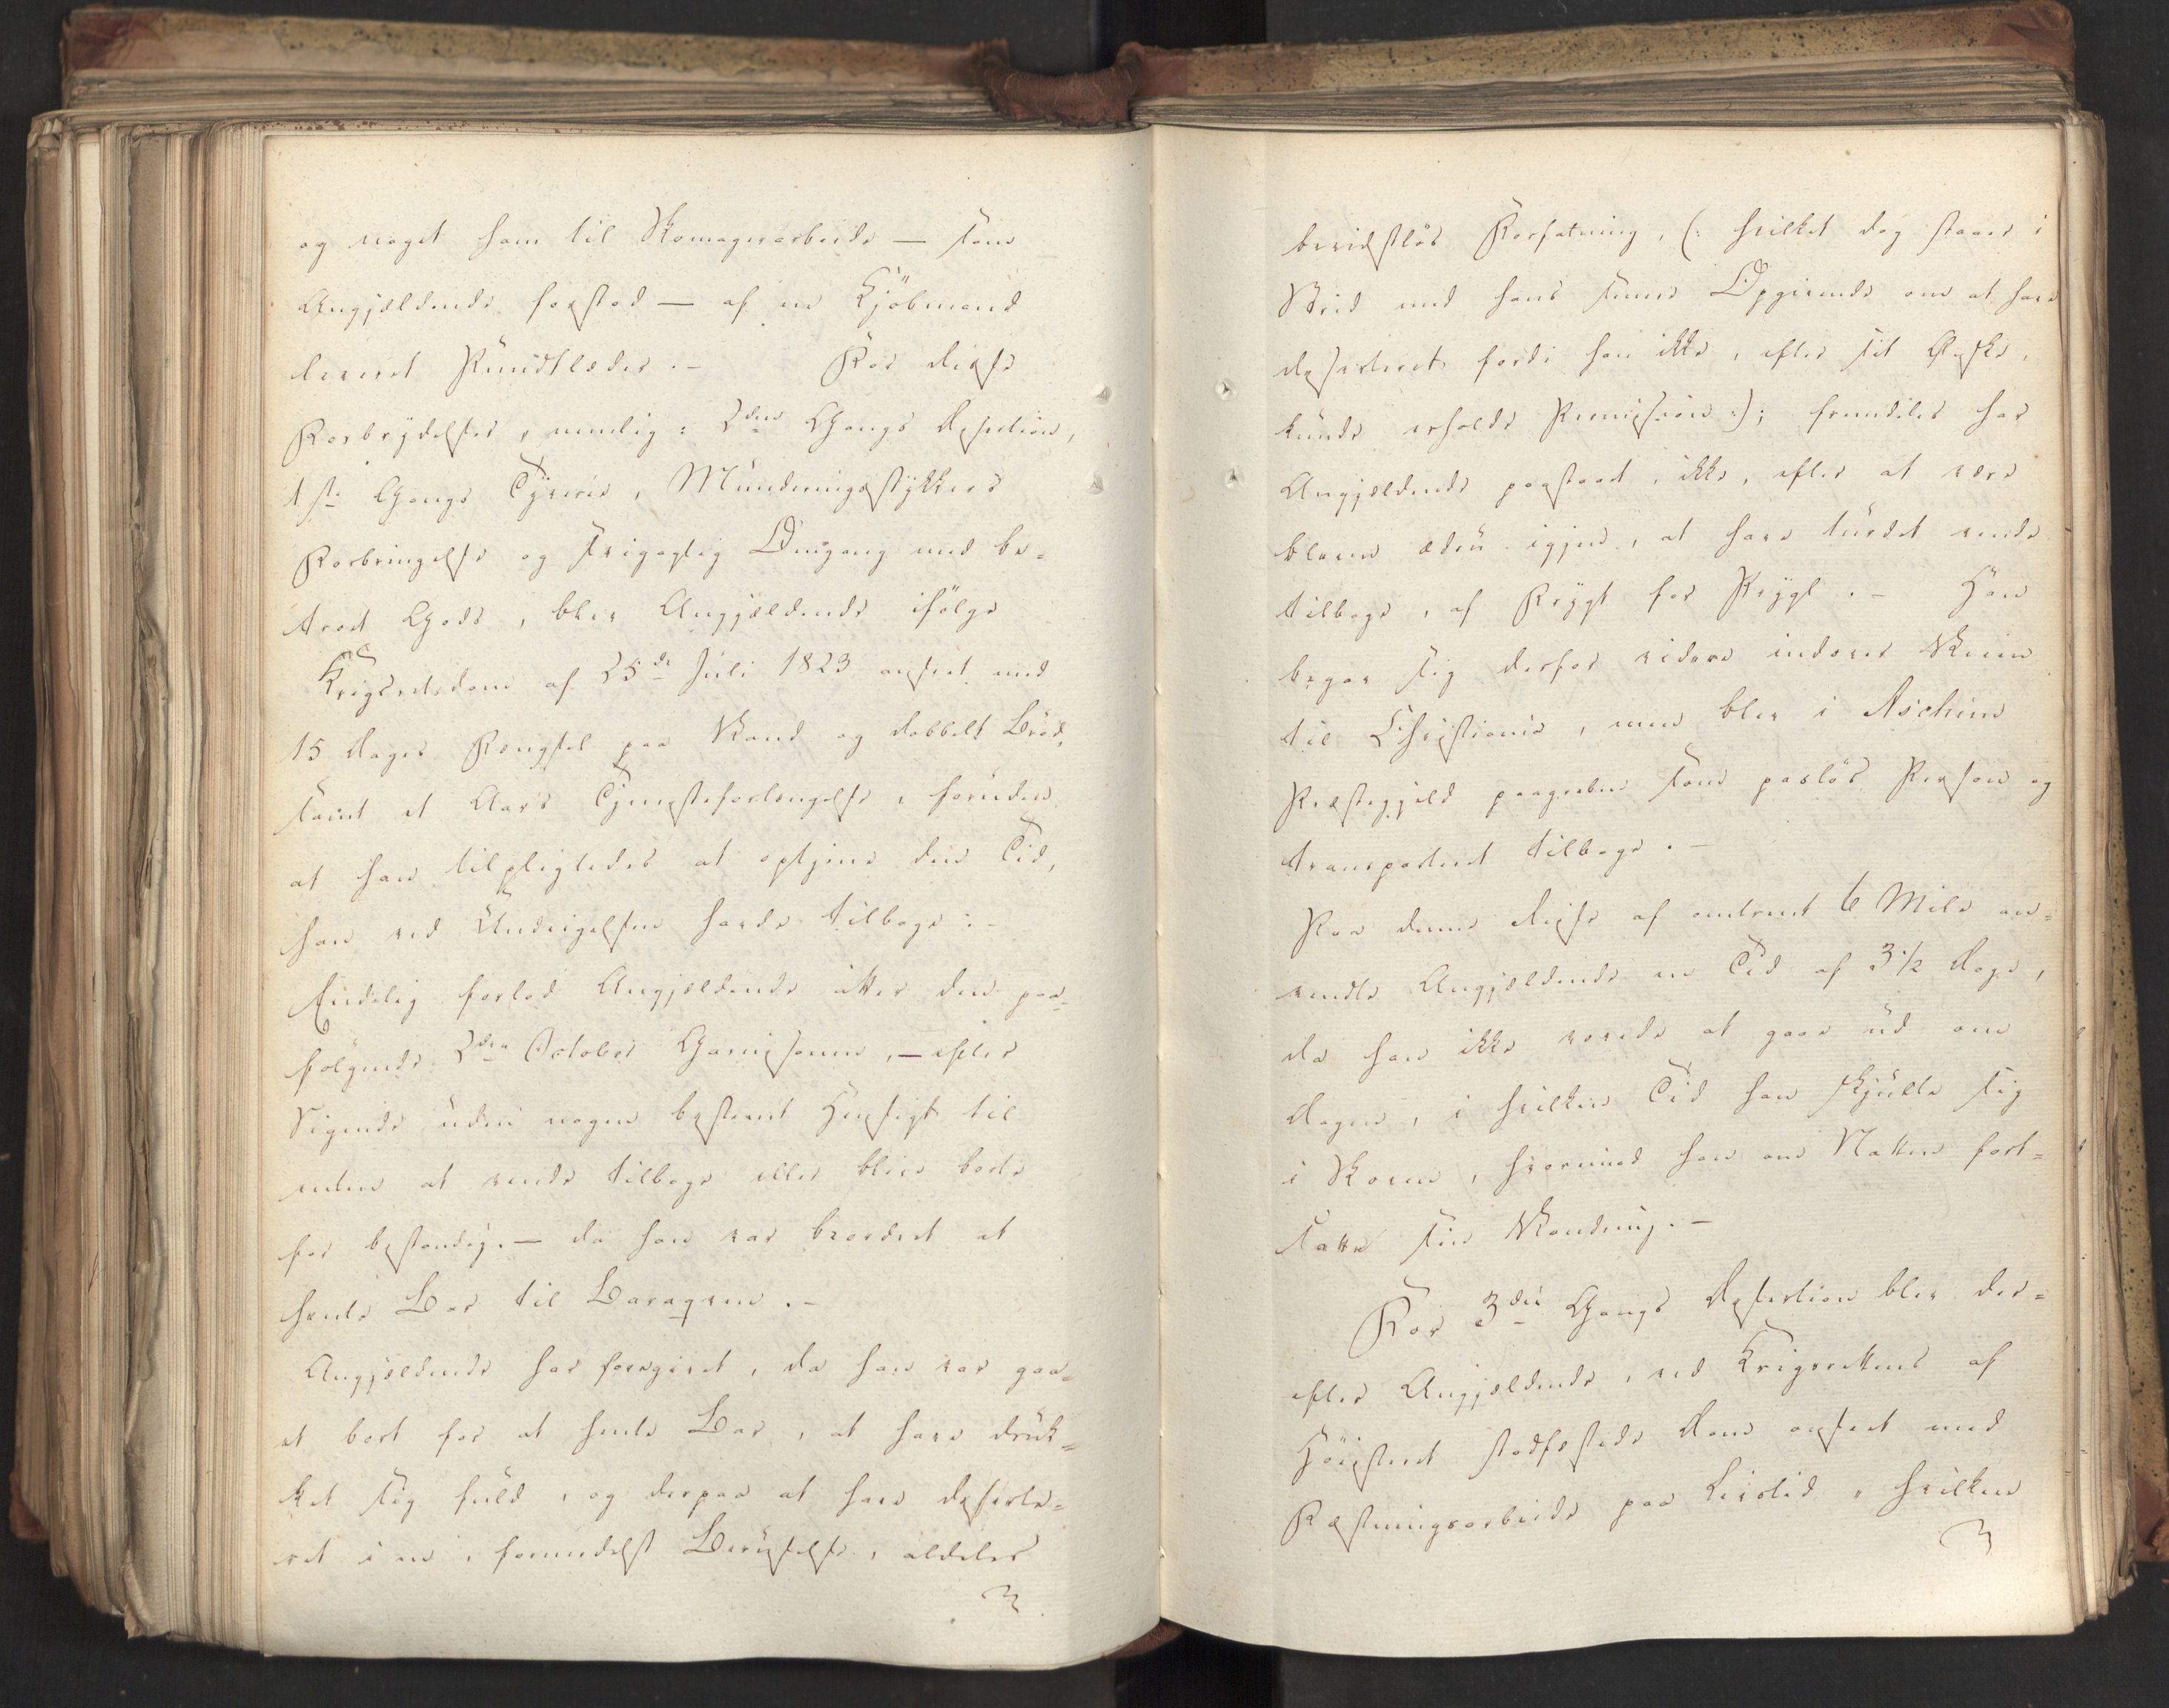 og noget ham til Skomagerarbeide — som
Angjældende forstod — af en Kjöbmand
leveret Rundtlæder. — For disse
Forbrydelser, nemlig: 2den Gangs Desertion,
1ste Gangs Tyverie, Munderingsstykkers
Forbringelse og svigagtig Omgang med be-
troet Gods, blev Angjældende ifölge
Krigsretsdom af 25de Juli 1823 anseet med
15 Dages Fængsel paa Vand og dobbelt Bröd,
samt et Aars Tjenesteforlængelse, foruden
at han tilpligtedes at optjene den Tid,
han ved Undvigelsen havde tilbage. —
Endelig forlod Angjældende atter den paa-
fölgende 2den October Garnisonen, — efter
Sigende uden nogen bestemt Hensigt til
enten at vende tilbage eller blive borte
for bestandig. — da han var beordret at
hente Bar til Baraqven. —
Angjældende har foregivet, da han var gaa-
et bort for at hente Bar, at have druk-
ket sig fuld, og derpaa at have deserte-
ret i en, formedelst Beruselse, aldeles
bevidstlös Forfatning, (: hvilket dog staaer i
Strid med hans senere Opgivende om at have
deserteret fordi han ikke, efter sit Ønske,
kunde erholde Permission :); fremdeles har
Angjældende paastaaet, ikke, efter at være
bleven ædru igjen, at have turdet vende
tilbage, af Frygt for Prygl. — Han
begav sig derfor videre indover Veien
til Christiania, men blev i Aschim
Præstegjeld paagreben som paslös Person og
transporteret tilbage. —
Paa denne Reise af omtrent 6 Mile an-
vendte Angjældende en Tid af 3½ Dage,
da han ikke vovede at gaae ud om
Dagen, i hvilken Tid han skjulte sig
i Skoven, hvorimod han om Natten fort-
satte sin Vandring. —
For 3die Gangs Desertion blev der-
efter Angjældende, ved Krigsrettens af
Höiesteret stadfæstede Dom anseet med
Fæstningsarbeide paa Livstid, hvilken